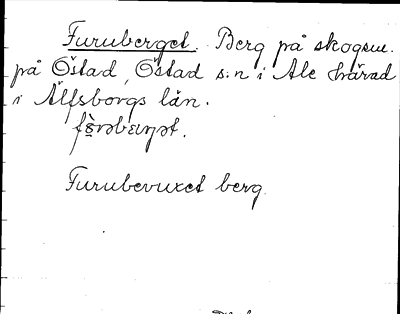 Furuberget. Berg på skogsm.
på Östad, Östad s:n i Ale härad
i Älfsborgs län.
Furubevuxet berg